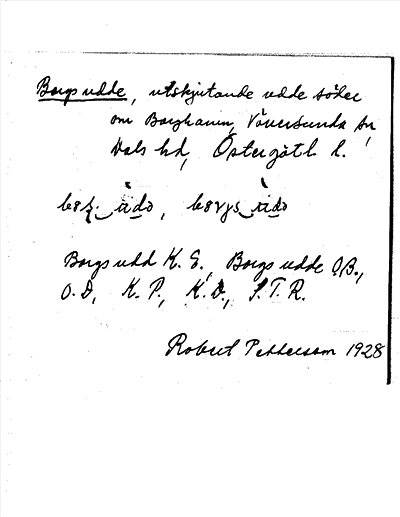 Borgs udde, utskjutande udde söder
om Borghamn, Väversunda sn,
Dals hd, Östergötl l.
Borgs udd K. E., Borgs udde O.B.,
O.D, K. P., K.D., S.T.R.
Robert Pettersson 1928